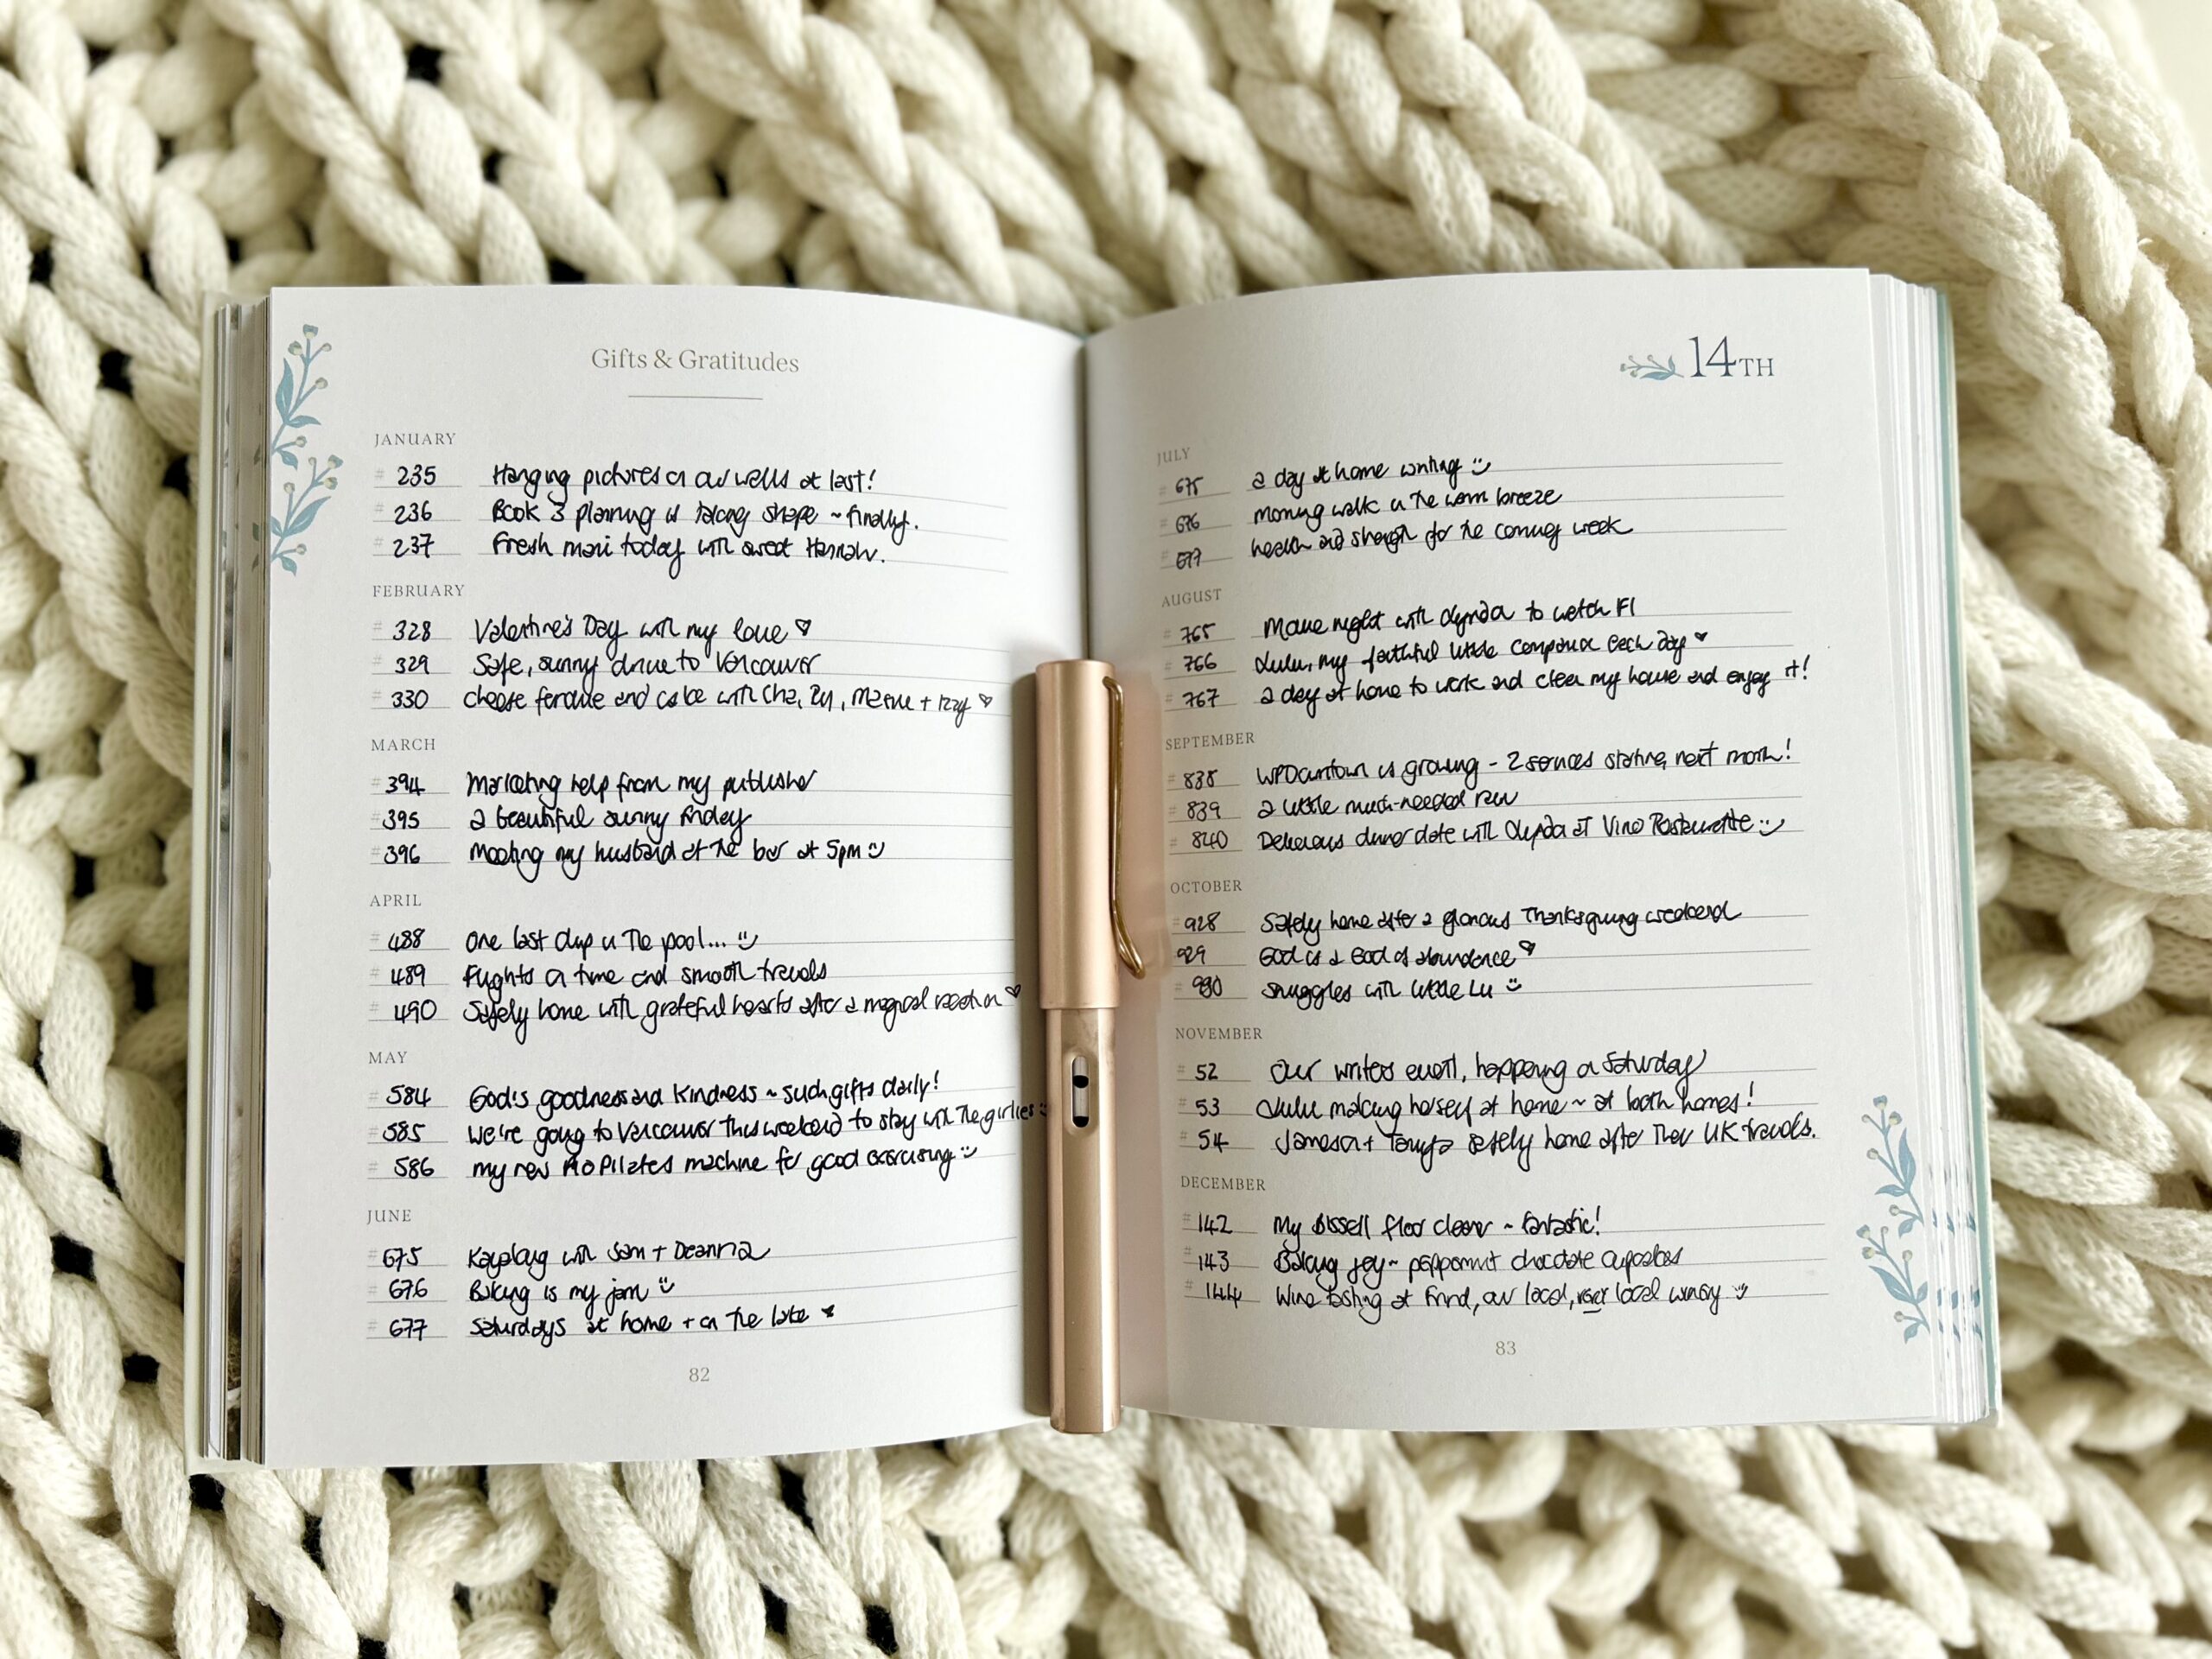 Gifts & Gratitudes
JANUARY
# 235 Hanging pictures on our walls at last!
# 236 Book 3 planning is taking shape ~ finally.
# 237 Fresh mani today with sweet Hannah.
FEBRUARY
# 328 Valentine's Day with my love ♡
# 329 Safe, sunny drive to Vancouver
# 330 cheese fondue and cake with Cha, + Izzy ♡
MARCH
# 394 Marketing help from my publisher
# 395 a beautiful sunny Friday
# 396 meeting my husband at the bar at 5pm
APRIL
# 488 One last dip in the pool...
# 489 Flights on time and smooth travels
# 490 Safely home with grateful hearts after a magical vacation ♡
MAY
# 584 God's goodness and kindness ~ such gifts daily!
# 585 We're going to Vancouver this weekend to stay with the girlies
# 586 my new Pilates machine for good exercising
JUNE
# 675 Kayaking with Sam + Deanna
# 676 Baking is my jam
# 677 Saturdays at home + on the lake ♥
82
14TH
JULY
# 675 a day at home writing
# 676 morning walk in the warm breeze
# 677 health and strength for the coming week
AUGUST
# 765 Movie night with Lynda to watch F1
# 766 Lulu, my faithful little companion each day ♥
# 767 a day at home to work and clean my house and enjoy it!
SEPTEMBER
# 838 WPDowntown is growing - 2 services starting next month!
# 839 a little much-needed rain
# 840 Delicious dinner date with Lynda at Vino
OCTOBER
# 928 Safely home after a glorious Thanksgiving weekend
929 God is a God of abundance ♡
# 930 snuggles with little Lu
NOVEMBER
# 52 Our writers event, happening on Saturday
# 53 Lulu making herself at home ~ at both homes!
# 54 Jameson + Tanya safely home after their UK travels.
DECEMBER
# 142 My Bissell floor cleaner ~ fantastic!
# 143 Baking joy ~ peppermint chocolate cupcakes
# 144 Wine tasting at our local, very local winery
83